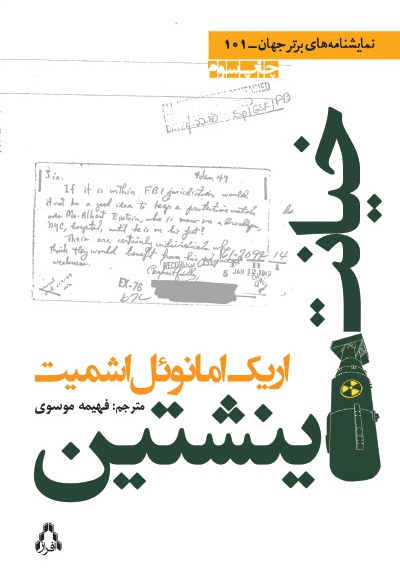 نمایشنامه‌های برتر جهان ـ ۱۰۱
چاپ سوم
DATE 4-22-80 BY Sp1GSK/PB
Sir: 4 Jan 49
If it is within FBI jurisdiction would
it not be a good idea to keep a protective watch
over Dr. Albert Einstein, who is now in a Brooklyn,
NYC, hospital, until he is on his feet?
There are certainly individuals who
think they would benefit from his
weakness.
Respectfully,
61-7099-14
RECORDED
5 JAN 12 1949
EX-76
خیانت
اینشتین
اریک امانوئل اشمیت
مترجم: فهیمه موسوی
افراز